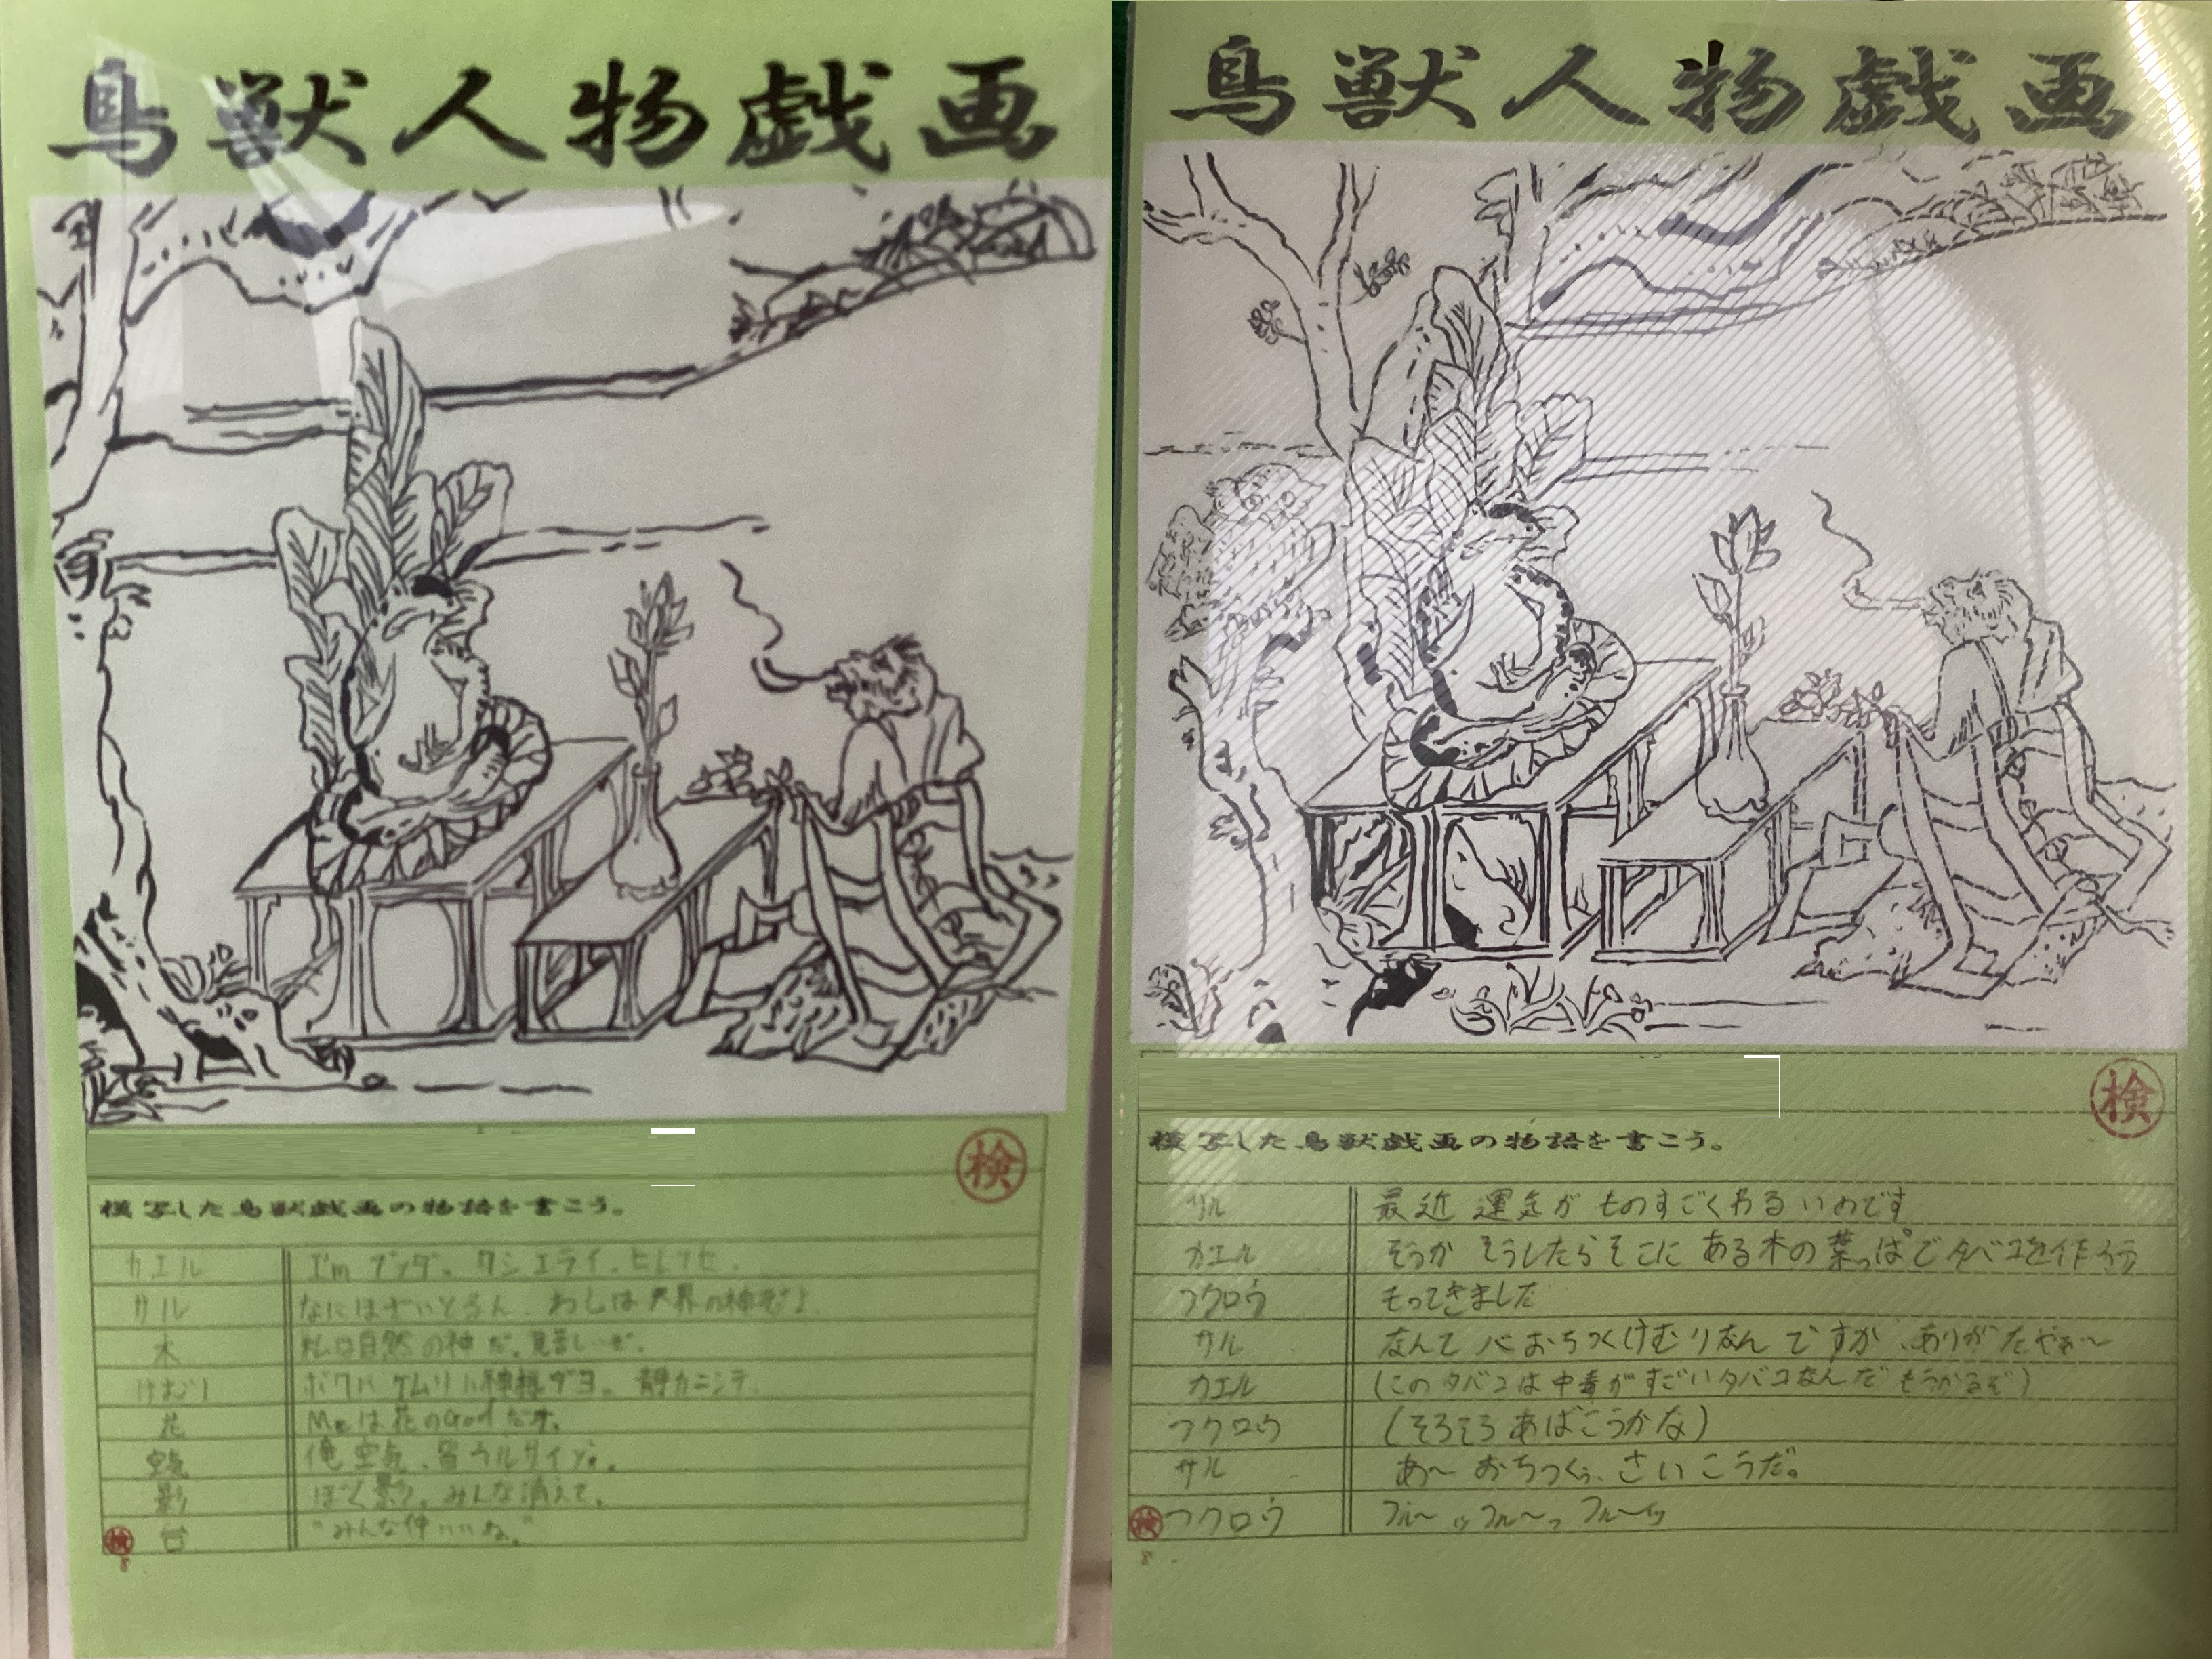 鳥獣人物戯画
検
模写した鳥獣戯画の物語を書こう。
カエル I'm ブッダ。ワシエライ。ヒレフセ。
サル なにほざいとるん、わしは天界の神ぞよ
木 私は自然の神だ。見苦しいぞ。
けむり ボクハケムリノ神様ダヨ。静カニシテ。
花 Meは花のGodだオ。
空気 俺空気、皆ウルサイゾ。
影 ぼく影。みんな消えて。
検 台 "みんな仲いいね。"
8
鳥獣人物戯画
検
模写した鳥獣戯画の物語を書こう。
サル 最近 運気が ものすごくわるいのです
カエル そうか そうしたらそこに ある木の葉っぱでタバコを作ろう
フクロウ もってきました
サル なんて 心おちつくけむりなん ですか、ありがたやぁ〜
カエル (このタバコは中毒がすごいタバコなんだ もうかるぞ)
フクロウ (そろそろ あばこうかな)
サル あ〜 おちつくぅ、さいこうだ。
検 フクロウ フル〜ッフル〜ッ フル〜ッ
8